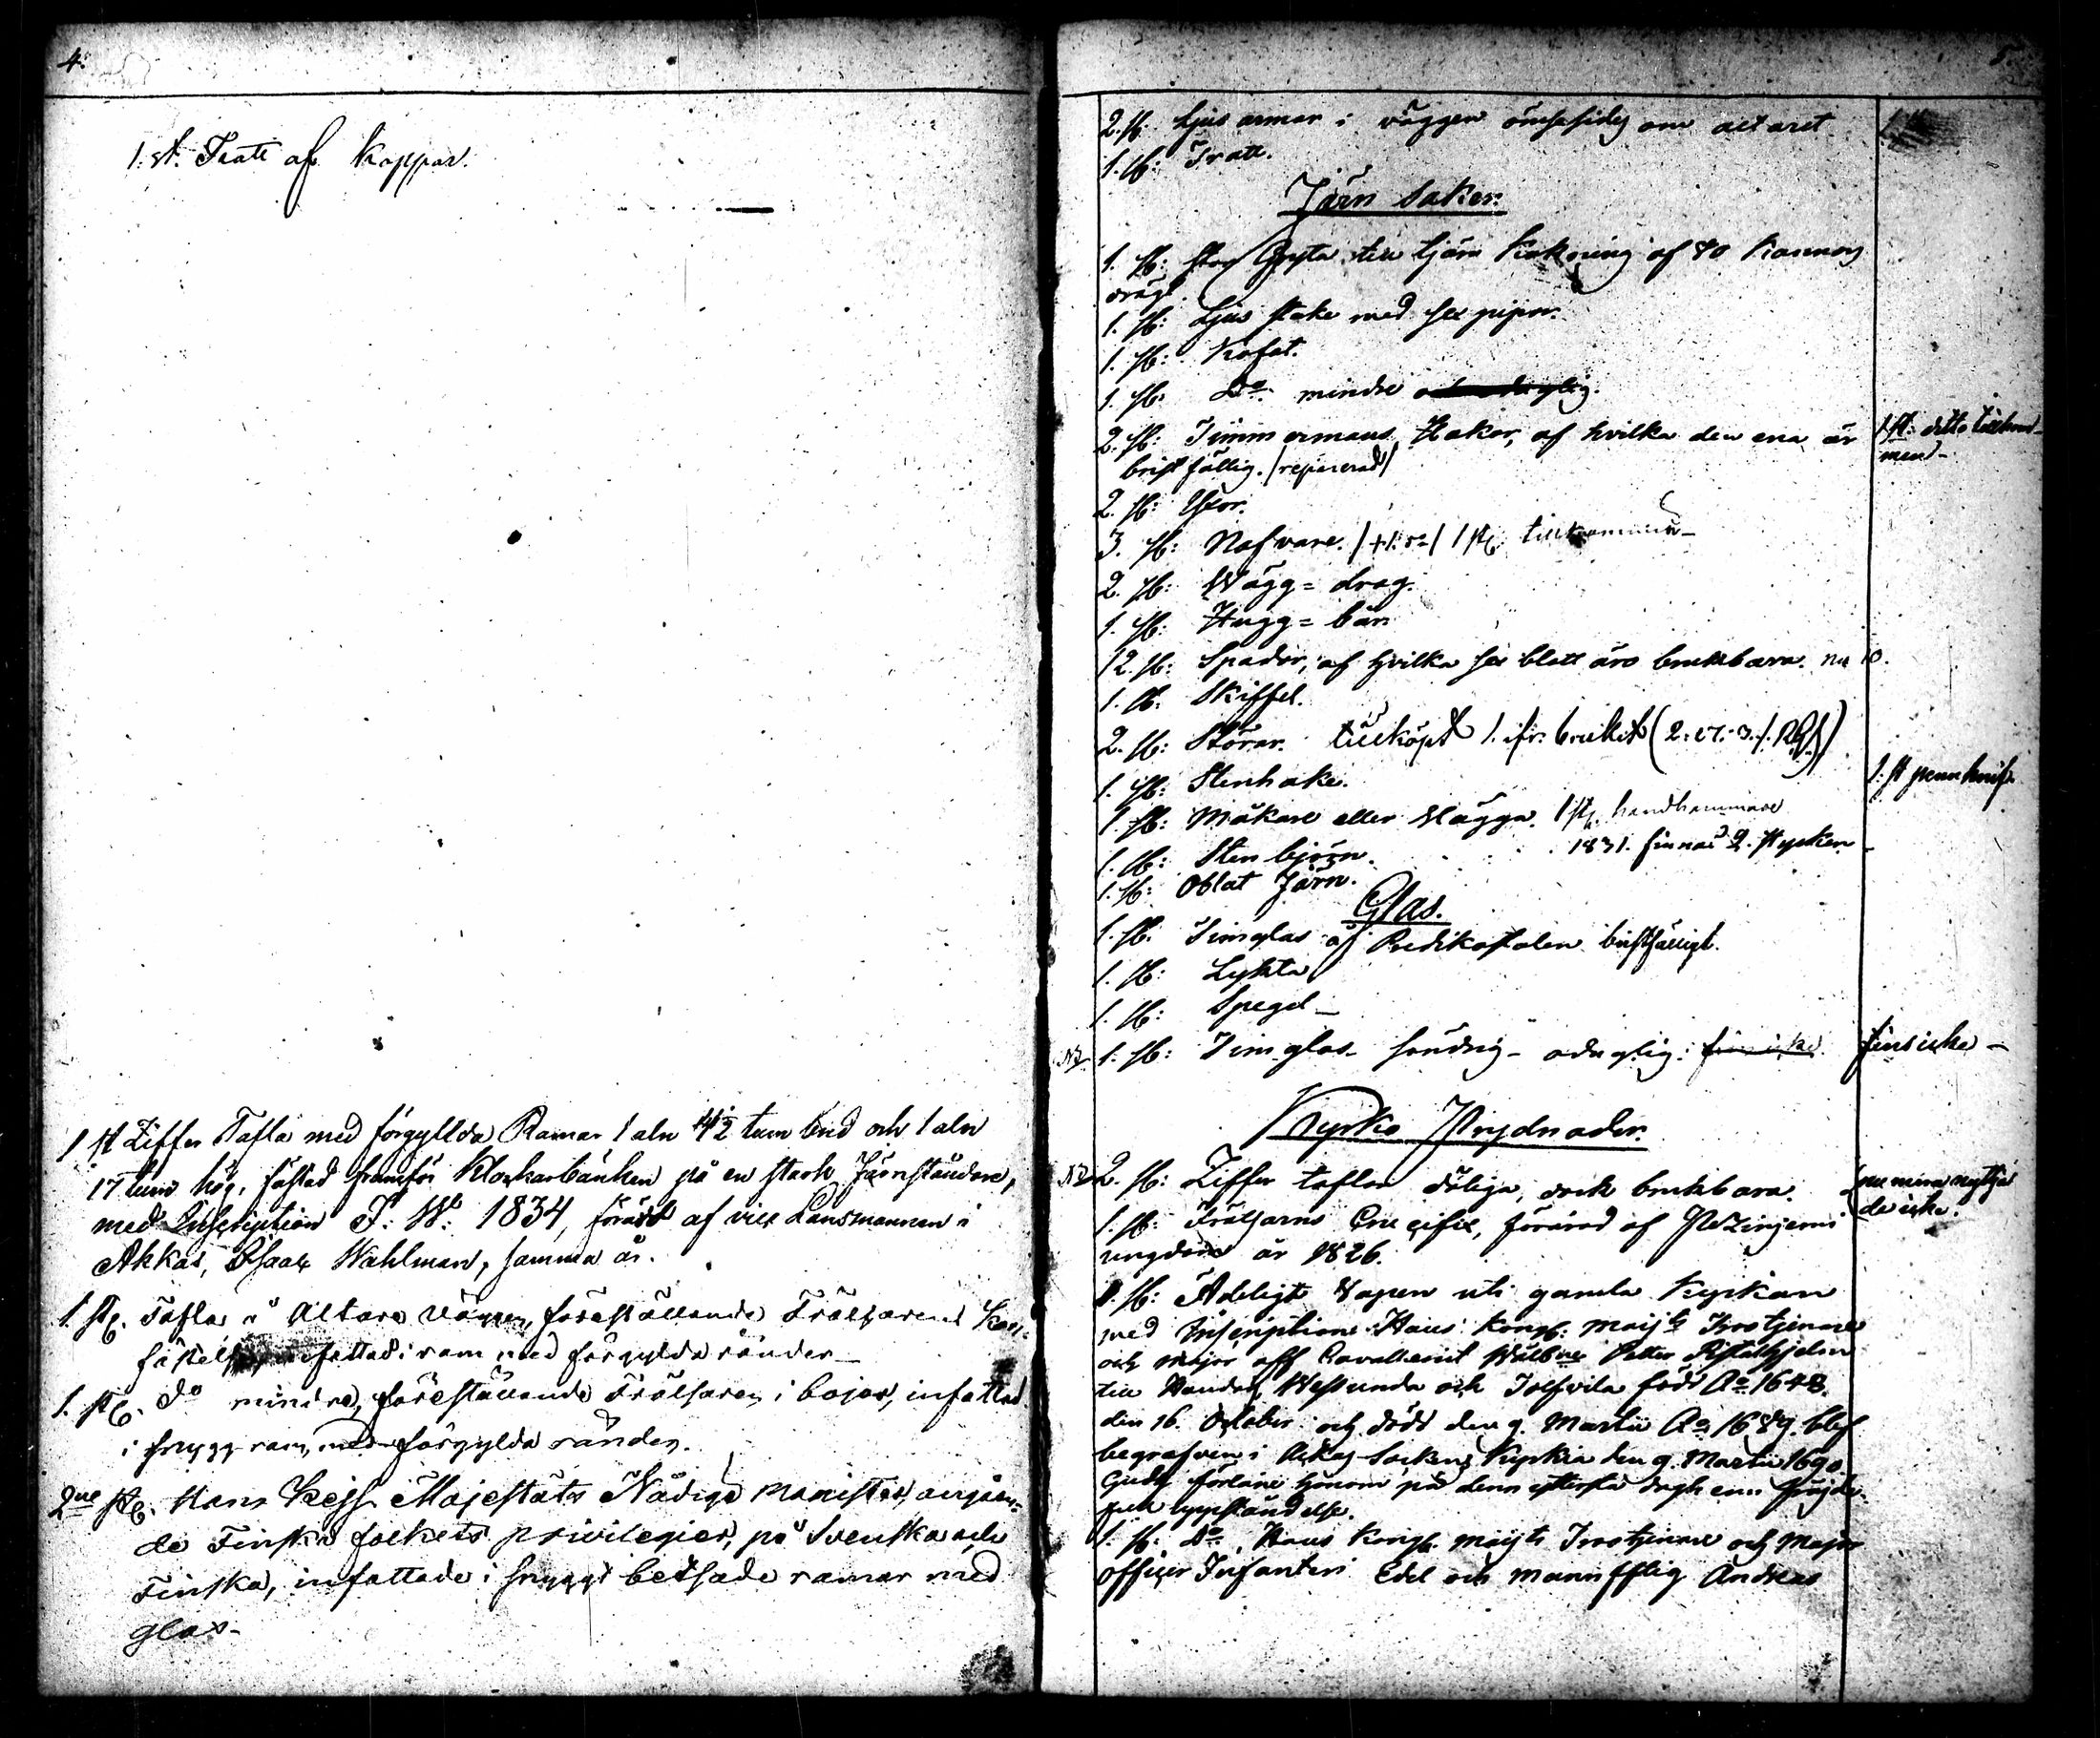 4.
1. st. Tratt af Koppar.
1 st Ziffer Tafla med förgyllda Ramar 1 aln 4½ tum bred och 1 aln
17 tum hög, fästad framför Klockarbänken på en stark Järnständare,
med Inscription I: W: 1834, föräst af vice Lansmannen i
Akkas, Isaak Wahlman, samma år.
1. st. Tafla å Altare väggen, föreställande Frälsarens Kors-
fästelse infattad i ram med förgylda ränder
1. st. do mindre, föreställande Frälsaren i bojor, infattad
i snygg ram, med förgylda ränder.
2ne st. Hans Kejs. Majestäts Nådiga Manifester, angåen-
de Finska folkets privilegier, på Svenska och
Finska, infattade i snygga betsade ramar med
glas-
5.
2. st: Ljus armar i väggen ömsesides om altaret
1. st: Tratt.
Järn saker.
1. st: stor Gryta till tjäru Kokning af 40 Kannors
drägt.
1. st: Ljus stake med sex pipor.
1. st: Kofot.
1. st: Do. mindre oduglig.
2. st: Timmermans Hakor, af hvilka den ena är
bristfällig. /reparerad/
1 st: ditto tillkom-
mend-
2. st: Yxor.
3. st: Nafvare. 1 st. tillkommen-
2. st: Wägg= drag.
1. st: Hugg= bän
12. st: Spador, af hvilka sex blott äro brukbara. nu 10.
1. st: Skiffel.
2. st: Störar. tillköpt 1. ifr. bruket
1. st: Stenhake.
1. st penn knif.
1. st: Mäkare eller Slägga. 1 st. handhammare
1. st: Sten björn. 1831. finnas 2. stycken
1. st: Oblat Järn.
Glas.
1. st. Timglas å Predikostolen bristfälligt.
1. st: Lykta
1. st: Spegel
N3. 1. st: Timglas söndrig- oduglig: fins icke fins icke -
Kyrko Prydnader.
N3. 2. st: Ziffer taflor dåliga, dock brukbara. nu mera nyttja-
des icke.
1. st: Frälsarns Crucifix, förärad af
ungdom år 1826.
1. st: Adeligt Vapen uti gamla Kyrkan
med Inscription Hans Kongl: Maijts Trotjenare
och Major aff Cavalleriet Wälb:ne Petter
till Handos, Westunda och Tolfvila född Ao 1648.
den 16. October och död den 9. Martii Ao 1689. blef
begrafven i Ackas Sockens Kyrkia den 9. Martii 1690.
Gudh förläne honom på denn ytterste dagh enn fröjde-
full uppståndelse.
1. st. Do. Hans Kongl. Maijts Trotjenare och Major
officer Infanteri Edel och Mannfftig Andreas